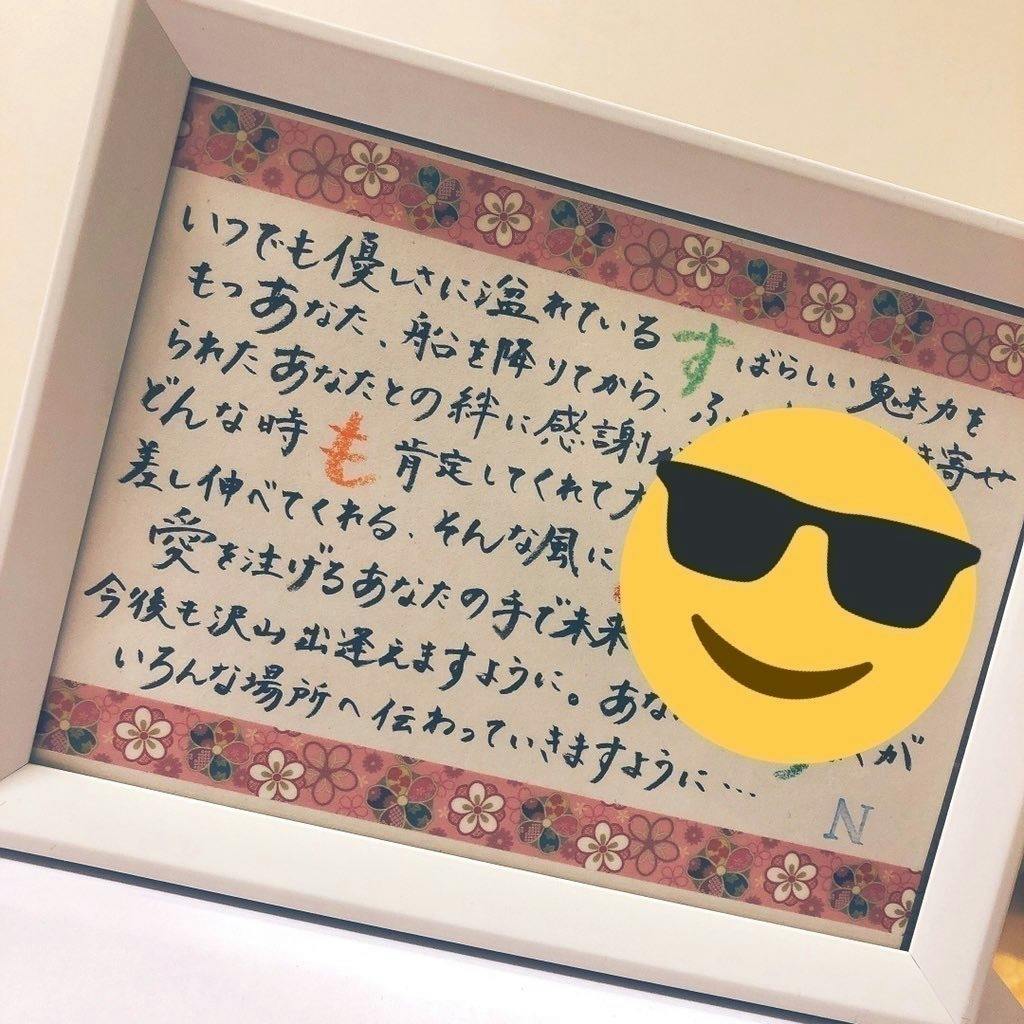 いつでも優しさに溢れているすばらしい魅力を
もつあなた、船を降りてから、ふ き寄せ
られたあなたとの絆に感謝
どんな時も肯定してくれて
差し伸べてくれる、そんな風に
愛を注げるあなたの手で未来
今後も沢山出逢えますように。あな が
いろんな場所へ伝わっていきますように…
N